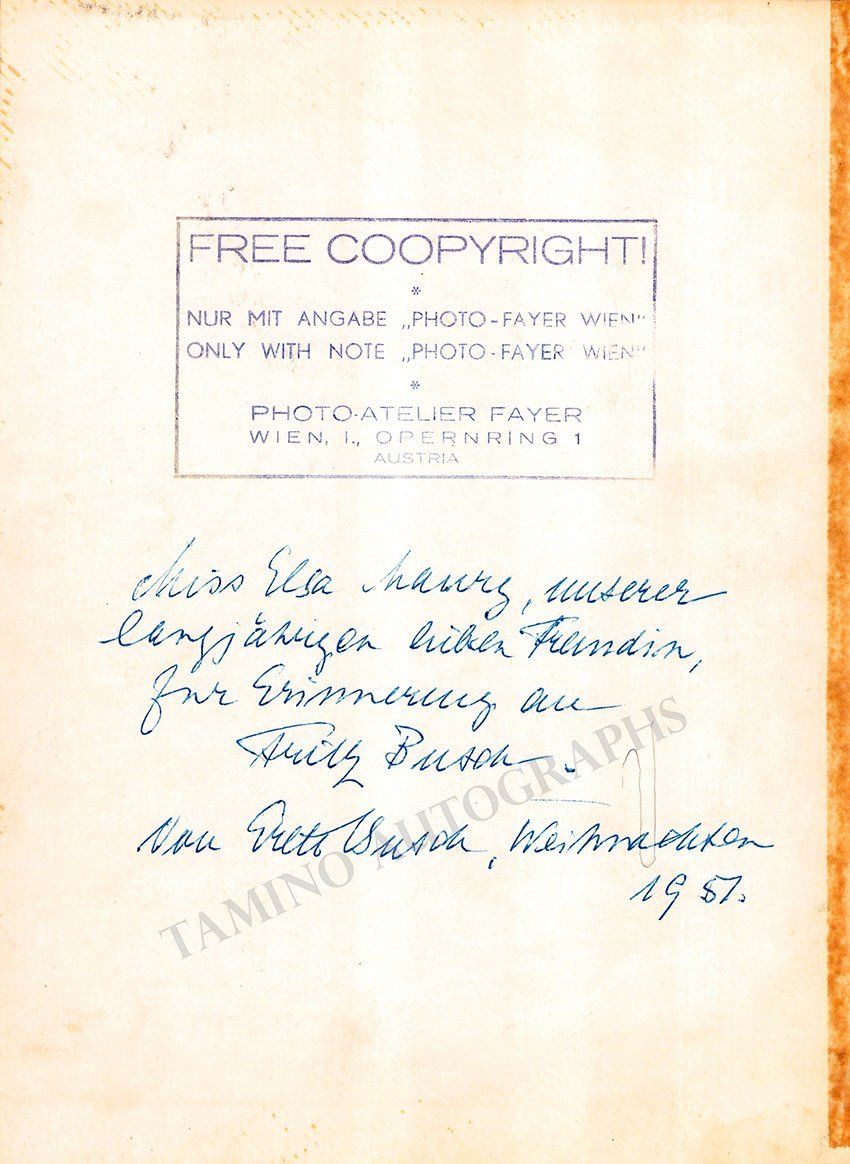 FREE COOPYRIGHT!
*
NUR MIT ANGABE „PHOTO-FAYER WIEN"
ONLY WITH NOTE „PHOTO-FAYER WIEN"
*
PHOTO-ATELIER FAYER
WIEN, I., OPERNRING 1
AUSTRIA
Miss Elsa, unserer
langjährigen lieben Freundin,
zur Erinnerung an
Fritz Busch.
Von Grete Busch, Weihnachten
1951.
TAMINO AUTOGRAPHS